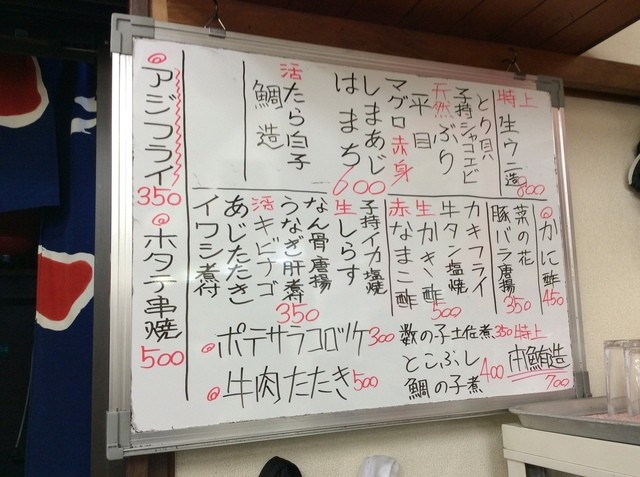 特上 生ウニ造 800
とり貝
子持シャコエビ
天然ぶり
平目
マグロ赤身
しまあじ
はまち 600
活たら白子
鯛造
◎かに酢 450
菜の花
豚バラ唐揚 350
カキフライ
牛タン塩焼
生かき酢 500
赤なまこ酢
子持イカ塩焼
生しらす
なん骨唐揚
うなぎ肝煮付 350
活キビナゴ
あじたたき
イワシ煮付
◎アジフライ 350
◎ホタテ串焼 500
◎ポテサラコロッケ 300
◎牛肉たたき 500
数の子土佐煮 350
とこぶし 400
鯛の子煮
特上
本鮪造 700